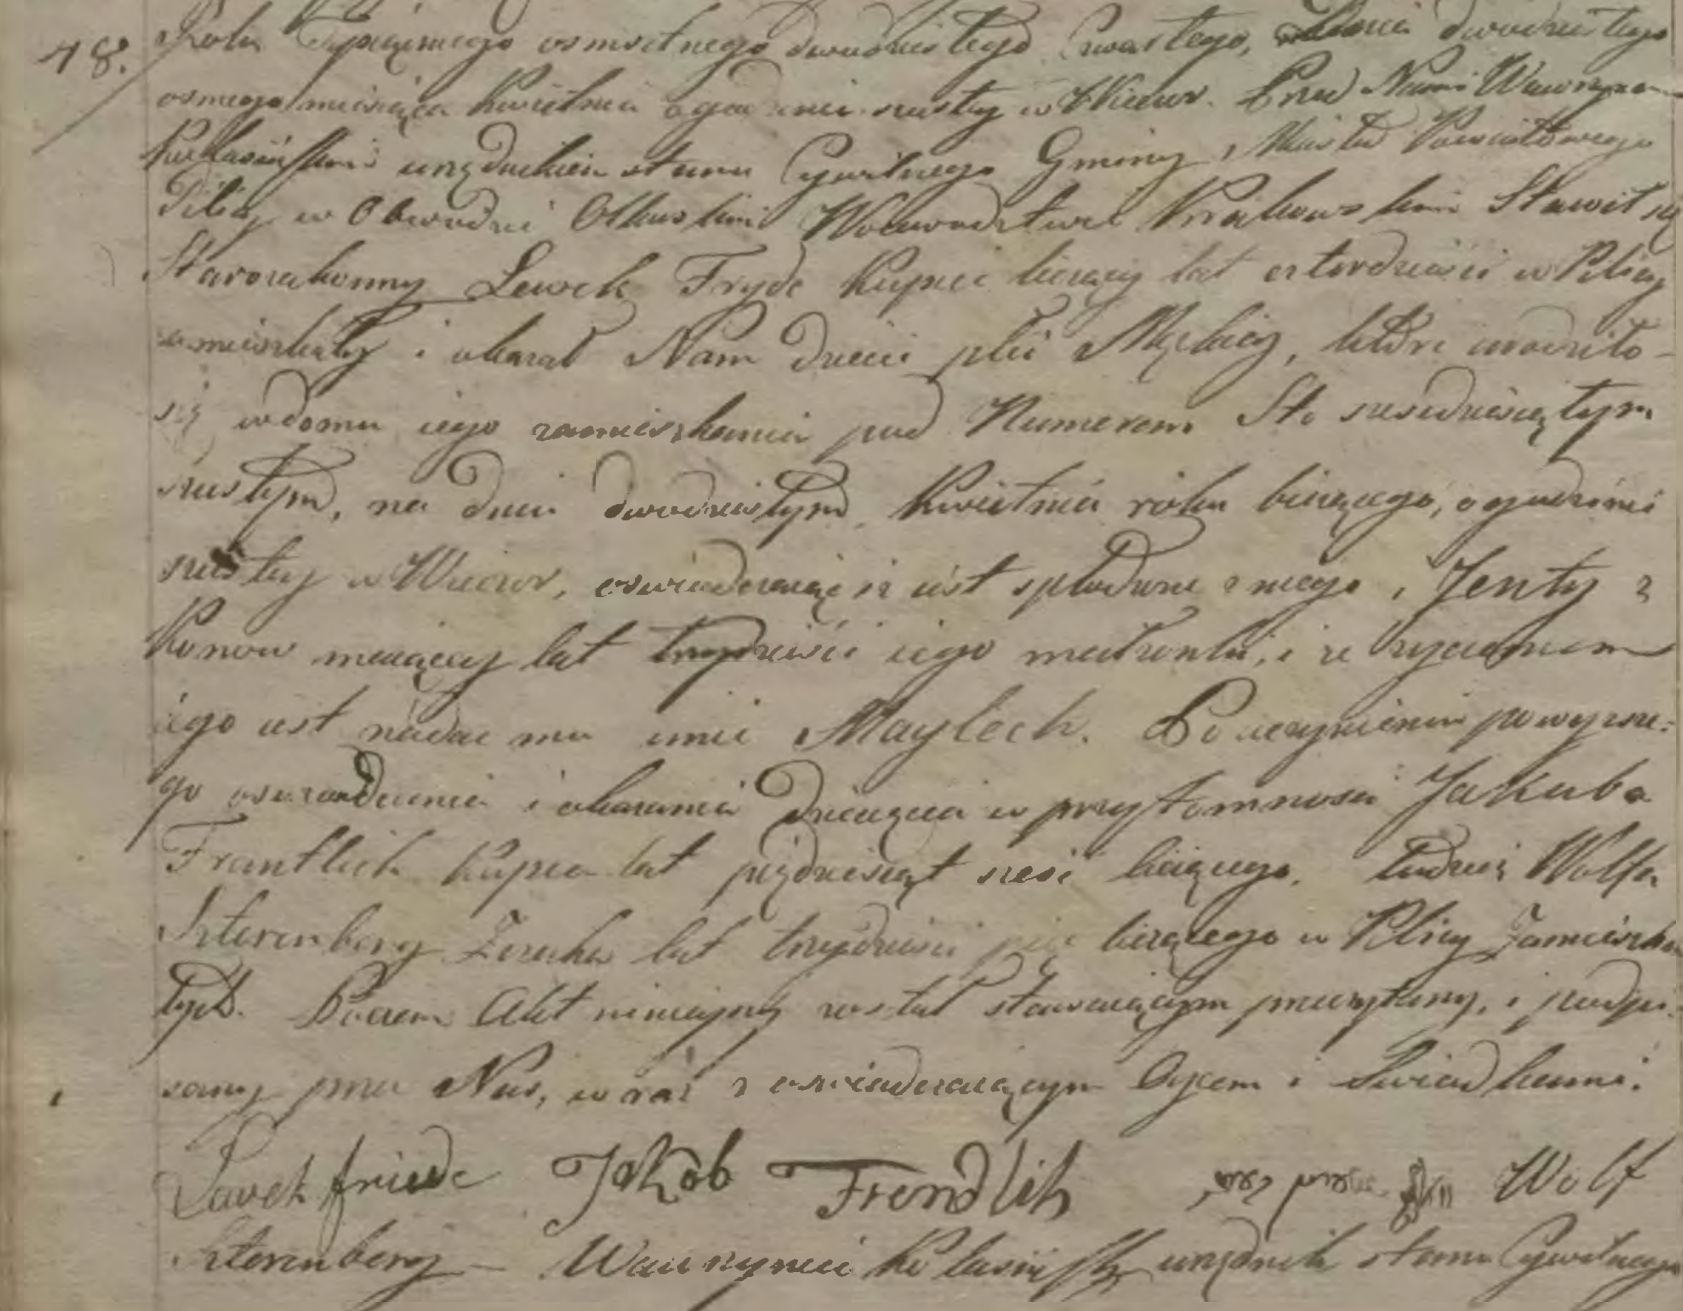 48. Roku Tysiącznego osmsetnego dwudziestego Czwartego, Dnia dwudziestego
osmego miesiąca Kwietnia o godzinie szostey w Wieczor. Przed Nami Wawrzyncem
urzędnikiem stanu Cywilnego Gminy Miasta Powiatowego
Pilicy w Obwodzie Olkuskim Woiewodztwie Krakowskim Stawił się
Starozakonny Lewek Fryde Kupiec liczący lat czterdzieści w Pilicy
zamieszkały i okazał Nam Dziecie płci Męskiey, które urodziło
się w domu iego zamieszkania pod Numerem Sto szesdziesiątym
szustym, na dniu dwudziestym Kwietnia roku bieżącego, o godzinie
szustey w Wieczor, oswiadczaiąc iż iest spłodzone z niego i Jenty z
Konow maiącey lat trzydzieści iego małżonki, i że życzeniem
iego iest nadać mu imie Maylech. Po uczynieniu powyższe-
go oswiadczenia i okazaniu Dziecięcia w przytomności Jakuba
Frantlich Kupca lat pięćdziesiąt sześć liczącego. tudzież Wolfa
Szterenberg lat trzydzieści liczącego w Pilicy Zamieszka
łych. Poczem Akt ninieyszy został stawaiącym przeczytany, i podpi-
sany przez Nas, w raz z oswiadczaiącym Oycem i Swiadkami.
Lavek friede Jakob Frendlich Wolf
Szterenberg – Wawrzyniec urzędnik stanu Cywilnego